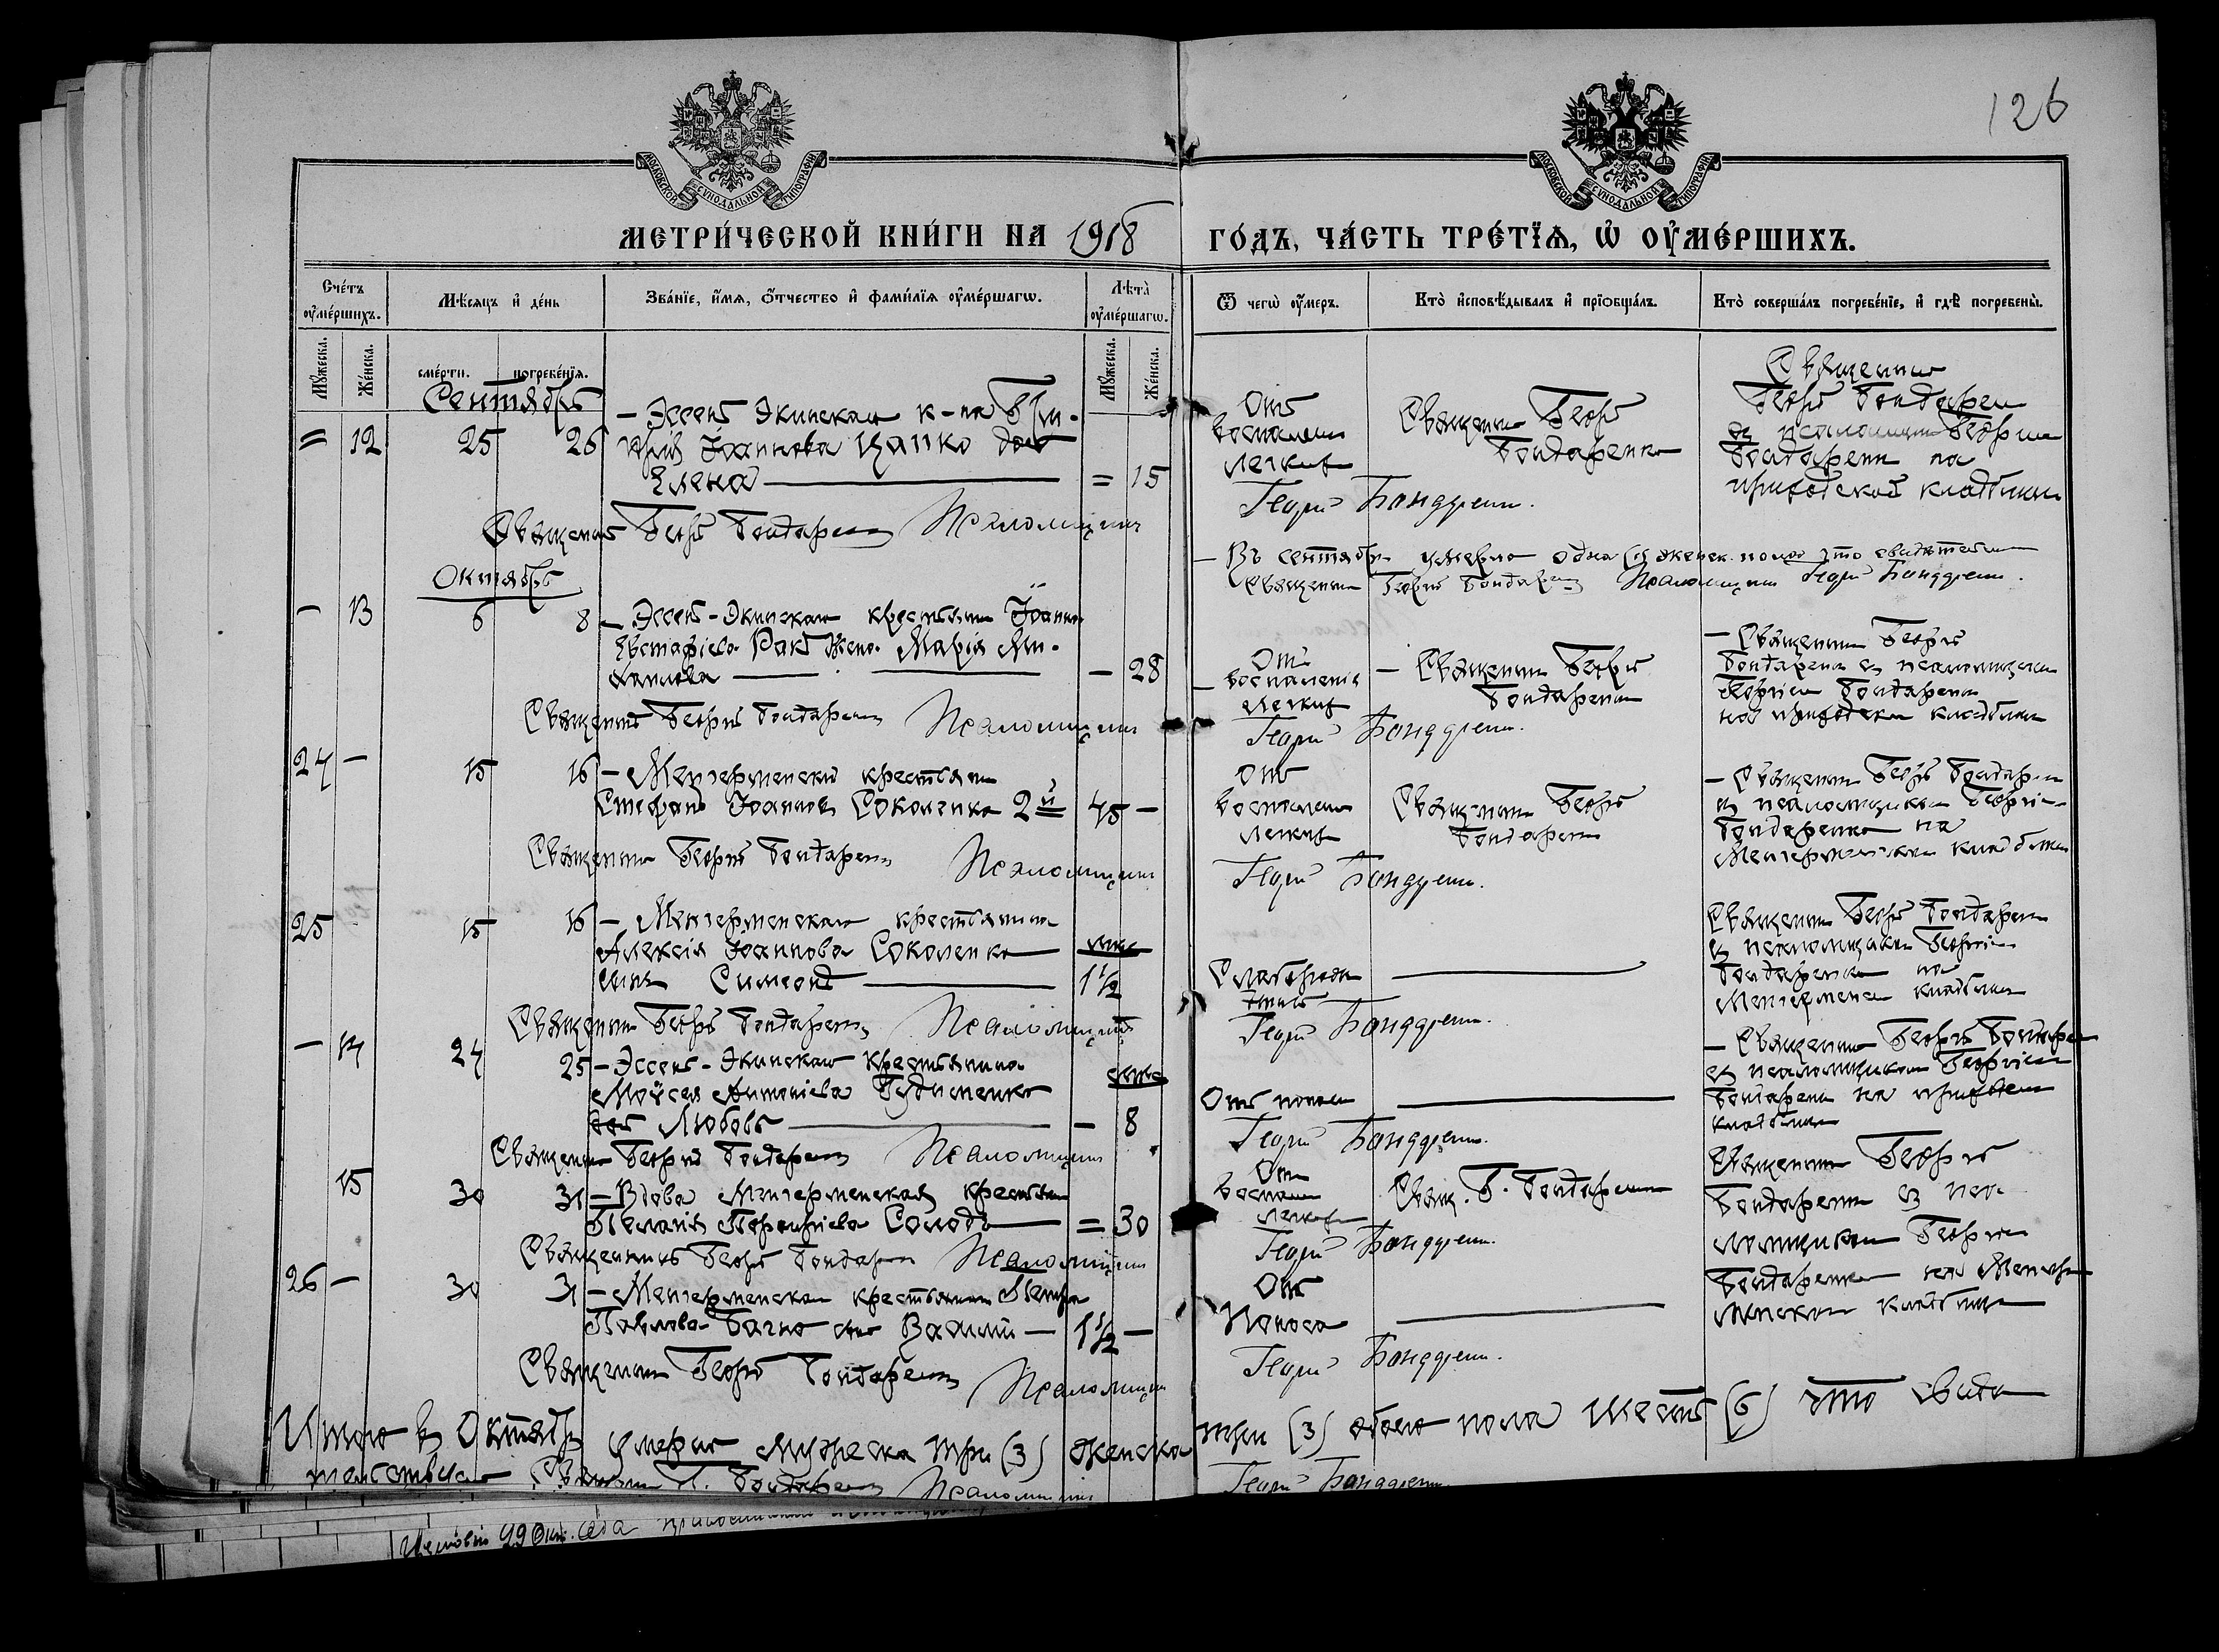 126
МОСКОВСКОЙ СУНОДАЛЬНОЙ ТИПОГРАФІИ
МОСКОВСКОЙ СУНОДАЛЬНОЙ ТИПОГРАФІИ
МЕТРИ́ЧЕСКОЙ КНИ́ГИ НА 1918 ГО́ДЪ, ЧА́СТЬ ТРЕ́ТЇѦ, Ѡ҆ ОУ҆МЕ́РШИХЪ.
Сче́тъ оу҆ме́ршихъ.
Мѣ́сяцъ и҆ де́нь
Зва́нїе, и҆́мѧ, ѻ҆́тчество и҆ фами́лїѧ оу҆ме́ршагѡ.
Лѣ́та̀ оу҆ме́ршагѡ.
Ѿ чегѡ̀ оу҆́меръ.
Кто̀ и҆сповѣ́дывалъ и҆ прїѻбща́лъ.
Кто̀ соверша́лъ погребе́нїе, и҆ гдѣ̀ погребены̀.
Мꙋ́жеска.
Же́нска.
сме́рти.
погребе́нїѧ.
Мꙋ́жеска.
Же́нска.
Сентябрь
= 12 25 26 – Эссенъ Экинская
Іоаннова Цапко
Елена = 15
Отъ
воспаления
легких
Священник Георгій
Бондаренко
Священник
Георгій Бондаренко
псаломщик Георгием
Бондаренко на
приходском кладбище
Священник Георгій Бондаренко Псаломщик Георгій Бондаренко
– Въ сентябре умерло одна (1) женск. пола что свидетел
Священник Георгій Бондаренко Псаломщик Георгій Бондаренко
Октябрь
– 13 6 8 – Эссенъ-Экинская крестьян Іоанна
Евстафіева Рак жена Марія Ми-
хаилова – 28
От
воспаленія
легких
– Священник Георгій
Бондаренко
– Священник Георгій
Бондаренко с псаломщиком
Георгіем Бондаренко
на приходском кладбище
Священник Георгій Бондаренко Псаломщик Георгій Бондаренко
24 – 15 16 – крестьян
Стефанъ Іоаннов Соколенко 2й 45 –
Отъ
воспаления
легких
Священник Георгій
Бондаренко
– Священник Георгій Бондаренко
с псаломщиком Георгіем
Бондаренко на
кладбище
Священник Георгій Бондаренко Псаломщик Георгій Бондаренко
25 15 16 – крестьянина
Алексія Іоаннова Соколенко
сынъ Симеонъ 1½
Священник Георгій Бондаренко
с псаломщиком Георгіем
Бондаренко на
кладбище
Священник Георгій Бондаренко Псаломщик Георгій Бондаренко
– 14 24 25 – Эссенъ-Экинская крестьянина
Моѵсея Антоніева
Любовь – 8
Отъ поноса
– Священник Георгій Бондаренко
с псаломщиком Георгіем
Бондаренко на приходском
кладбище
Священник Георгій Бондаренко Псаломщик Георгій Бондаренко
15 30 31 – Вдова крестьян
Пелагія Порфиріева Солод = 30
От
воспален
легких
Свящ. Г. Бондаренко
Священник Георгій
Бондаренко с пса-
ломщиком Георгием
Бондаренко на
кладбище
Священникъ Георгій Бондаренко Псаломщик Георгій Бондаренко
26 – 30 31 – крестьянина Петра
Павлова Багно сын Василій – 1½ –
Отъ
Поноса
Священник Георгій Бондаренко Псаломщик Георгій Бондаренко
Итого в Октябре умерло мужеска три (3) женска три (3) обоего пола шесть (6) что свиде
тельствуем Священник Г. Бондаренко Псаломщик Георгій Бондаренко